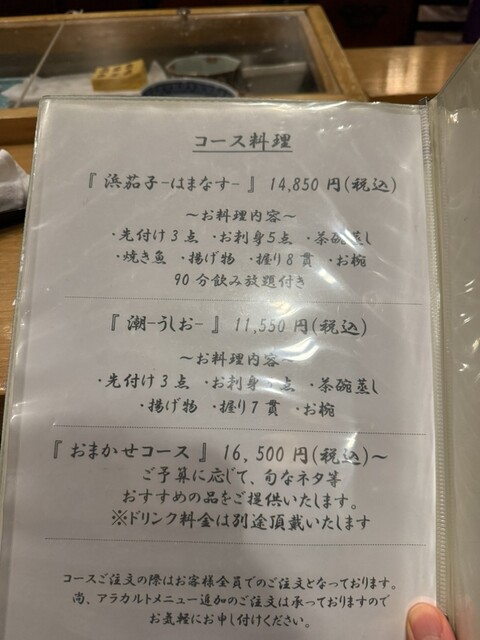 コース料理
『 浜茄子-はまなす- 』 14,850 円(税込)
～お料理内容～
・先付け3点 ・お刺身5点 ・茶碗蒸し
・焼き魚 ・揚げ物 ・握り8貫 ・お椀
90分飲み放題付き
『 潮-うしお- 』 11,550 円(税込)
～お料理内容～
・先付け3点 ・お刺身 点 ・茶碗蒸し
・揚げ物 ・握り7貫 ・お椀
『 おまかせコース 』 16,500 円(税込)～
ご予算に応じて、旬なネタ等
おすすめの品をご提供いたします。
※ドリンク料金は別途頂戴いたします
コースご注文の際はお客様全員でのご注文となっております。
尚、アラカルトメニュー追加のご注文は承っておりますので
お気軽にお申し付けください。